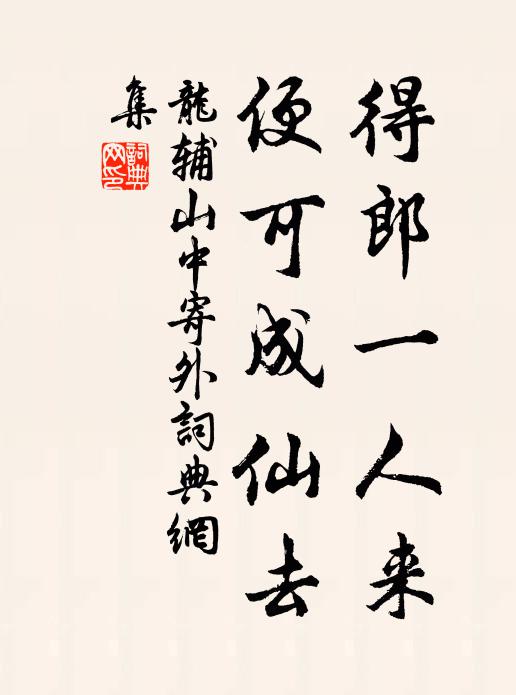 得郎一人来
便可成仙去
龍輔山中寄外詞典網
集
詞典
网印